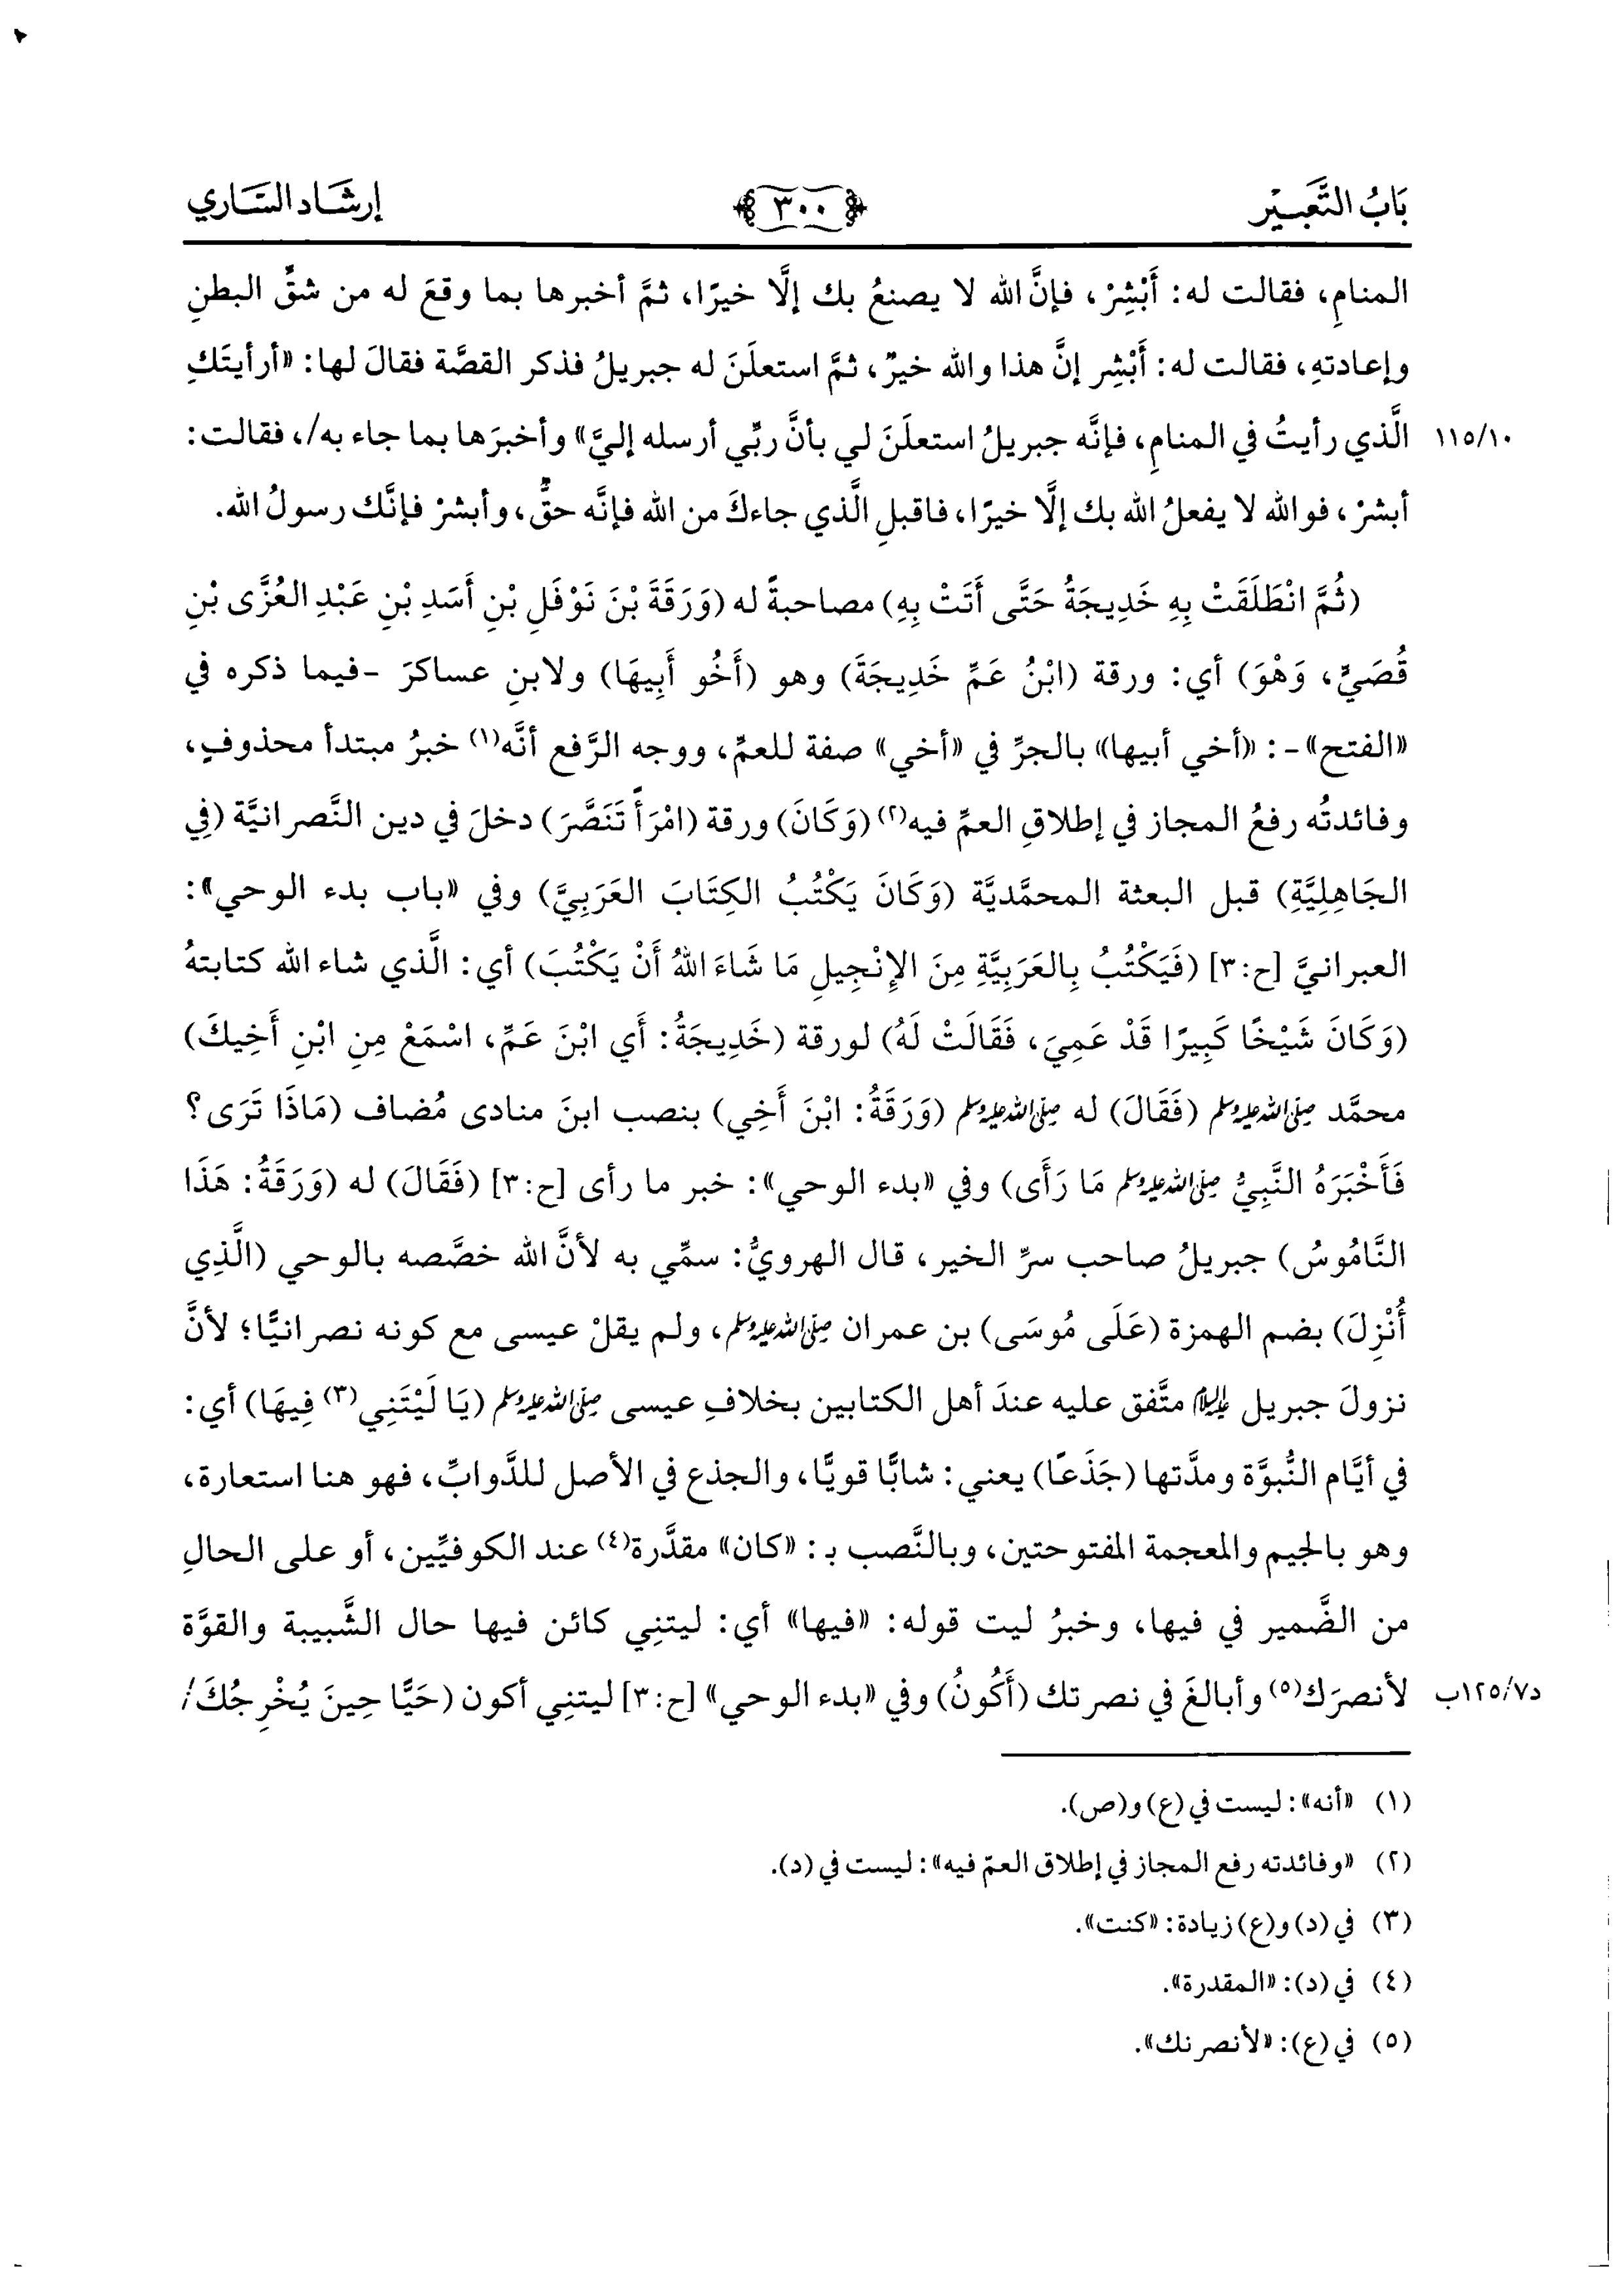 بَابُ التَّعبِيْر
٣٠٠
إرشَاد السَّاري
المنامِ، فقالت له: أَبْشِرْ، فإنَّ الله لا يصنعُ بك إلَّا خيرًا، ثمَّ أخبرها بما وقعَ له من شقِّ البطنِ
وإعادتهِ، فقالت له: أَبْشِر إنَّ هذا والله خيرٌ، ثمَّ استعلَنَ له جبريلُ فذكر القصَّة فقالَ لها: «أرأيتَكِ
الَّذي رأيتُ في المنامِ، فإنَّه جبريلُ استعلَنَ لي بأنَّ ربِّي أرسله إليَّ» وأخبرَها بما جاء به/، فقالت: ١١٥/١٠
أبشرْ، فوالله لا يفعلُ الله بك إلَّا خيرًا، فاقبلِ الَّذي جاءكَ من الله فإنَّه حقٌّ، وأبشرْ فإنَّك رسولُ الله.
(ثُمَّ انْطَلَقَتْ بِهِ خَدِيجَةُ حَتَّى أَتَتْ بِهِ) مصاحبةً له (وَرَقَةَ بْنَ نَوْفَلِ بْنِ أَسَدِ بْنِ عَبْدِ العُزَّى بْنِ
قُصَيٍّ، وَهْوَ) أي: ورقة (ابْنُ عَمِّ خَدِيجَةَ) وهو (أَخُو أَبِيهَا) ولابنِ عساكرَ -فيما ذكره في
«الفتح»-: «أخي أبيها» بالجرِّ في «أخي» صفة للعمِّ، ووجه الرَّفع أنَّه(١) خبرُ مبتدأ محذوفٍ،
وفائدتُه رفعُ المجاز في إطلاقِ العمِّ فيه(٢) (وَكَانَ) ورقة (امْرَأً تَنَصَّرَ) دخلَ في دين النَّصرانيَّة (فِي
الجَاهِلِيَّةِ) قبل البعثة المحمَّديَّة (وَكَانَ يَكْتُبُ الكِتَابَ العَرَبِيَّ) وفي «باب بدء الوحي»:
العبرانيَّ [ح:٣] (فَيَكْتُبُ بِالعَرَبِيَّةِ مِنَ الإِنْجِيلِ مَا شَاءَ اللهُ أَنْ يَكْتُبَ) أي: الَّذي شاء الله كتابتهُ
(وَكَانَ شَيْخًا كَبِيرًا قَدْ عَمِيَ، فَقَالَتْ لَهُ) لورقة (خَدِيجَةُ: أَي ابْنَ عَمِّ، اسْمَعْ مِنِ ابْنِ أَخِيكَ)
محمَّد صلى الله عليه وسلم (فَقَالَ) له صلى الله عليه وسلم (وَرَقَةُ: ابْنَ أَخِي) بنصب ابنَ منادى مُضاف (مَاذَا تَرَى؟
فَأَخْبَرَهُ النَّبِيُّ صلى الله عليه وسلم مَا رَأَى) وفي «بدء الوحي»: خبر ما رأى [ح:٣] (فَقَالَ) له (وَرَقَةُ: هَذَا
النَّامُوسُ) جبريلُ صاحب سرِّ الخير، قال الهرويُّ: سمِّي به لأنَّ الله خصَّصه بالوحي (الَّذِي
أُنْزِلَ) بضم الهمزة (عَلَى مُوسَى) بن عمران صلى الله عليه وسلم، ولم يقلْ عيسى مع كونه نصرانيًّا؛ لأنَّ
نزولَ جبريل عليه السلام متَّفق عليه عندَ أهل الكتابين بخلافِ عيسى صلى الله عليه وسلم (يَا لَيْتَنِي(٣) فِيهَا) أي:
في أيَّام النُّبوَّة ومدَّتها (جَذَعًا) يعني: شابًّا قويًّا، والجذع في الأصل للدَّوابِّ، فهو هنا استعارة،
وهو بالجيم والمعجمة المفتوحتين، وبالنَّصب بـ: «كان» مقدَّرة(٤) عند الكوفيِّين، أو على الحالِ
من الضَّمير في فيها، وخبرُ ليت قوله: «فيها» أي: ليتنِي كائن فيها حال الشَّبيبة والقوَّة
لأنصرَك(٥) وأبالغَ في نصرتك (أَكُونُ) وفي «بدء الوحي» [ح:٣] ليتنِي أكون (حَيًّا حِينَ يُخْرِجُكَ/ د١٢٥/٧ب
(١) «أنه»: ليست في (ع) و(ص).
(٢) «وفائدته رفع المجاز في إطلاق العمّ فيه»: ليست في (د).
(٣) في (د) و(ع) زيادة: «كنت».
(٤) في (د): «المقدرة».
(٥) في (ع): «لأنصرنك».